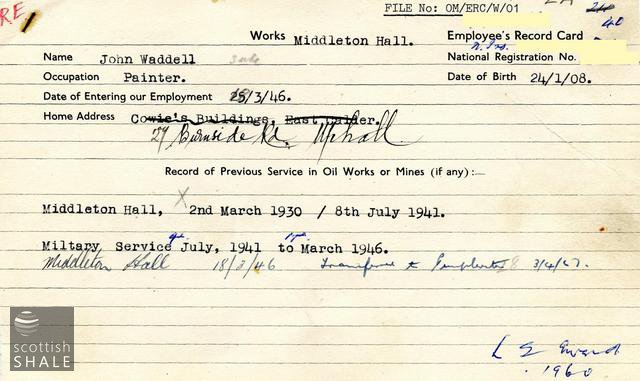 RE
FILE No: OM/ERC/W/01
Works Middleton Hall.
Employee's Record Card
Name John Waddell
National Registration No.
Occupation Painter.
Date of Birth 24/1/08.
Date of Entering our Employment 25/3/46.
Home Address Cowie's Buildings, East Calder.
27 Burnside Rd. Uphall.
Record of Previous Service in Oil Works or Mines (if any):—
Middleton Hall, X 2nd March 1930 / 8th July 1941.
Miltary Service July, 1941 to March 1946.
Middleton Hall 18/3/46 Transferred to 3/4/47.
scottish
SHALE
1960